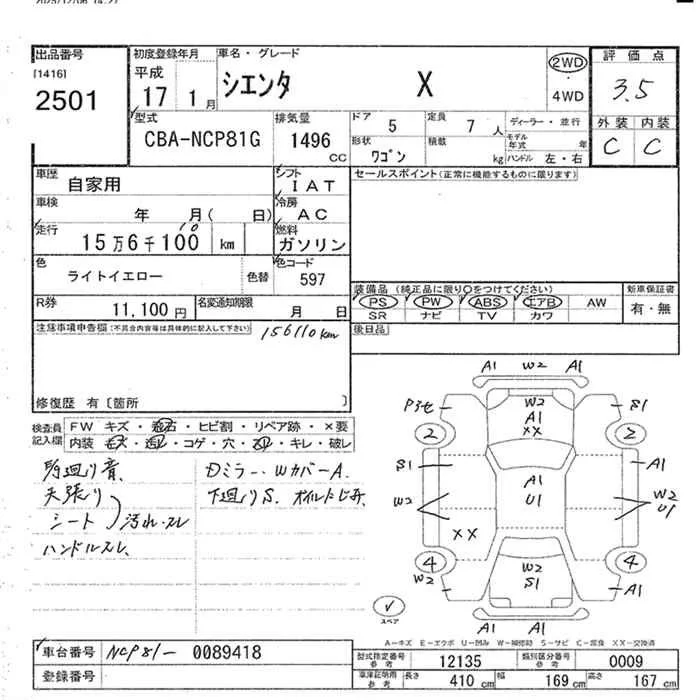 2025/12/06 14:27
出品番号
[1416]
2501
初度登録年月
平成
17 1月
車名・グレード
シエンタ X
2WD
4WD
評価点
3.5
外装 内装
C C
型式
CBA-NCP81G
排気量
1496
CC
ドア 5
定員 7人
ディーラー・並行
形状 ワゴン
積載 kg
モデル年式 年
ハンドル 左・右
車歴
自家用
シフト
IAT
セールスポイント(正常に機能するものに限ります)
車検
年 月( 日)
冷房
AC
走行
10
15万6千100 km
燃料
ガソリン
色
ライトイエロー
色替
色コード
597
R券
11,100円
名変通知期限
月 日
装備品 (純正品に限り○をつけてください)
PS PW ABS エアB AW
SR ナビ TV カワ
新車保証書
有・無
後日品
注意事項申告欄(不具合内容等は具体的に記入して下さい)
156110km
修復歴 有〔箇所 〕
検査員記入欄
FW キズ・飛石・ヒビ割・リペア跡・×要
内装 キズ・汚レ・コゲ・穴・スレ・キレ・破レ
天張り
シート
汚れ・スレ
ハンドルスレ
Dミラー・WカバーA
下廻りS
A1 W2 A1
S1
W2
A1
XX
2 2
S1
A1
A1
U1
W2
W2
U1
XX
4 4
W2
W2
S1
A1
A1 A1
スペア
A-キズ E-エクボ U-凹み W-補修跡 S-サビ C-腐食 XX-交換済
車台番号
NCP81- 0089418
登録番号
型式指定番号 参考 12135
類別区分番号 参考 0009
車庫証明用 参考 長さ 410 cm 幅 169 cm 高さ 167 cm